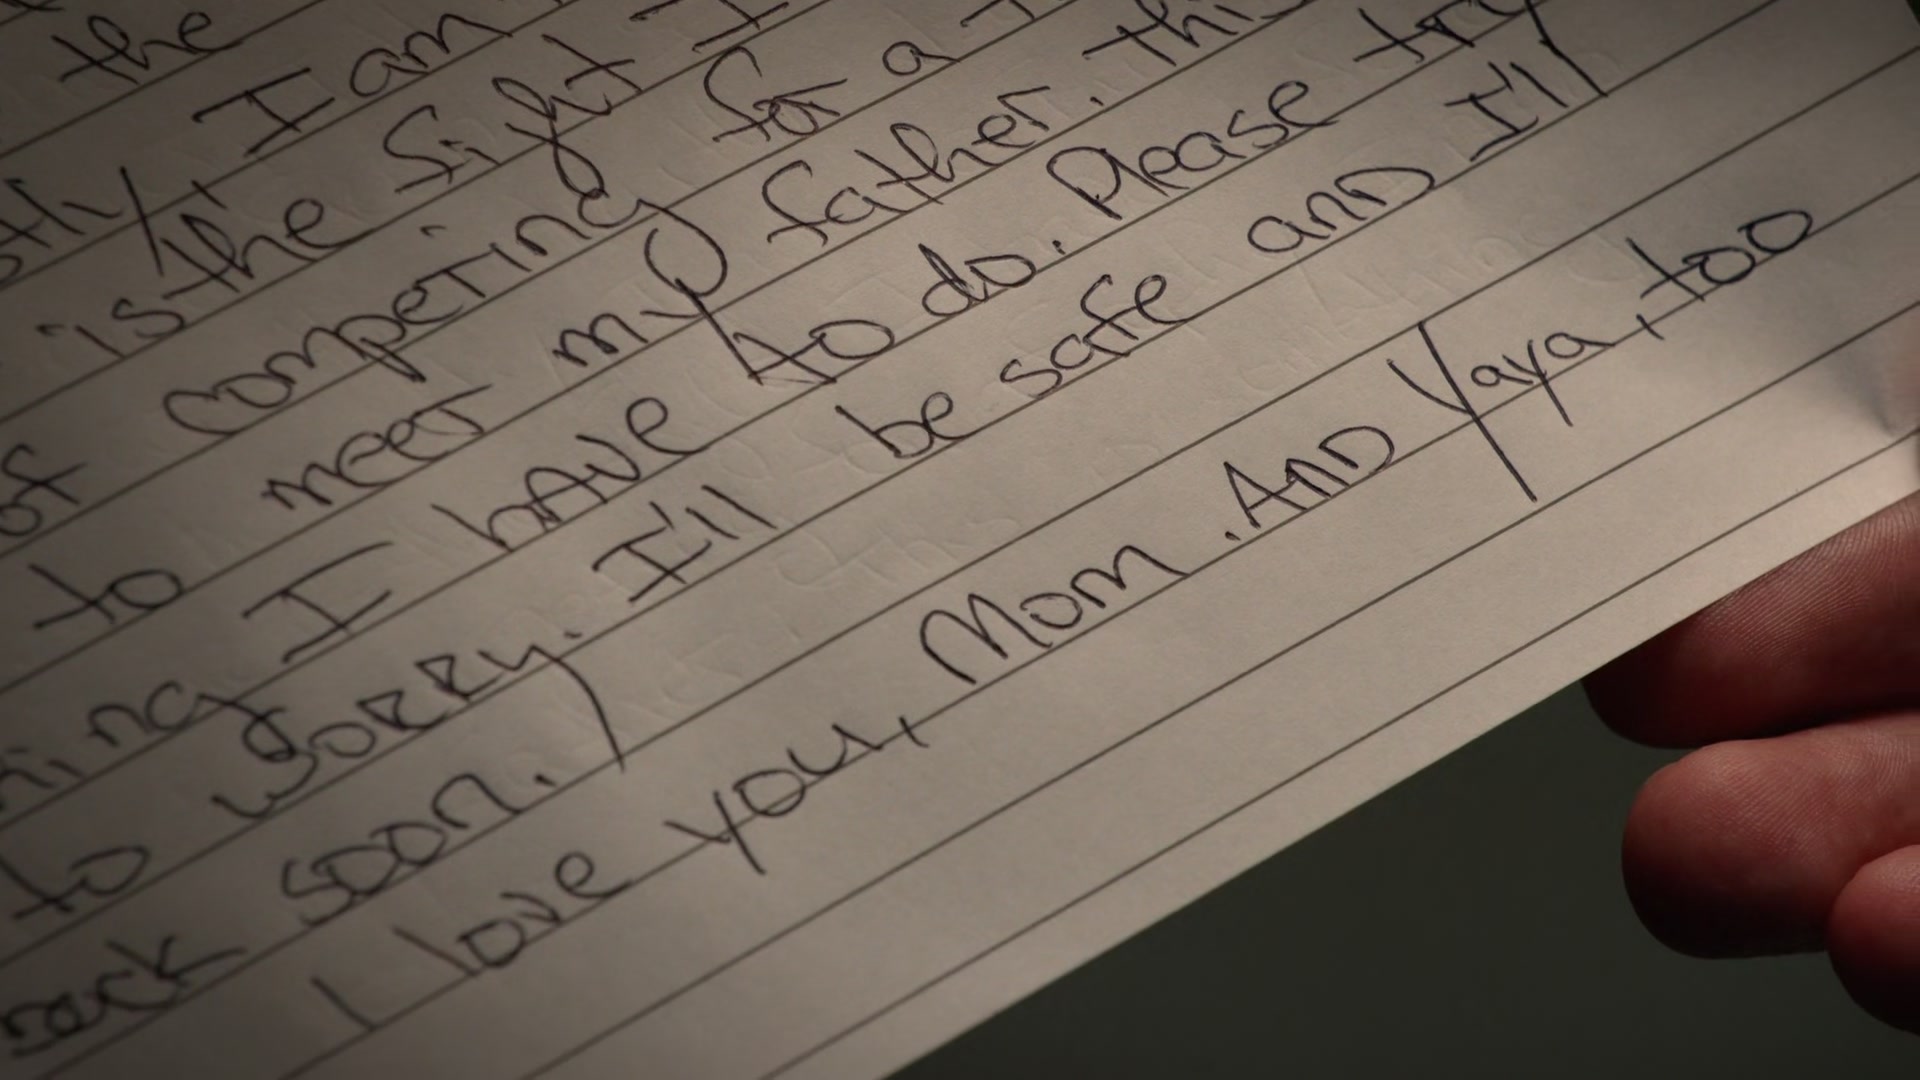 the
I am
is the I
of competing for a
to meet my father. this
I have to do. Please try
to worry. I'll be safe and I'll
back soon.
I love you, Mom. And Yaya, too